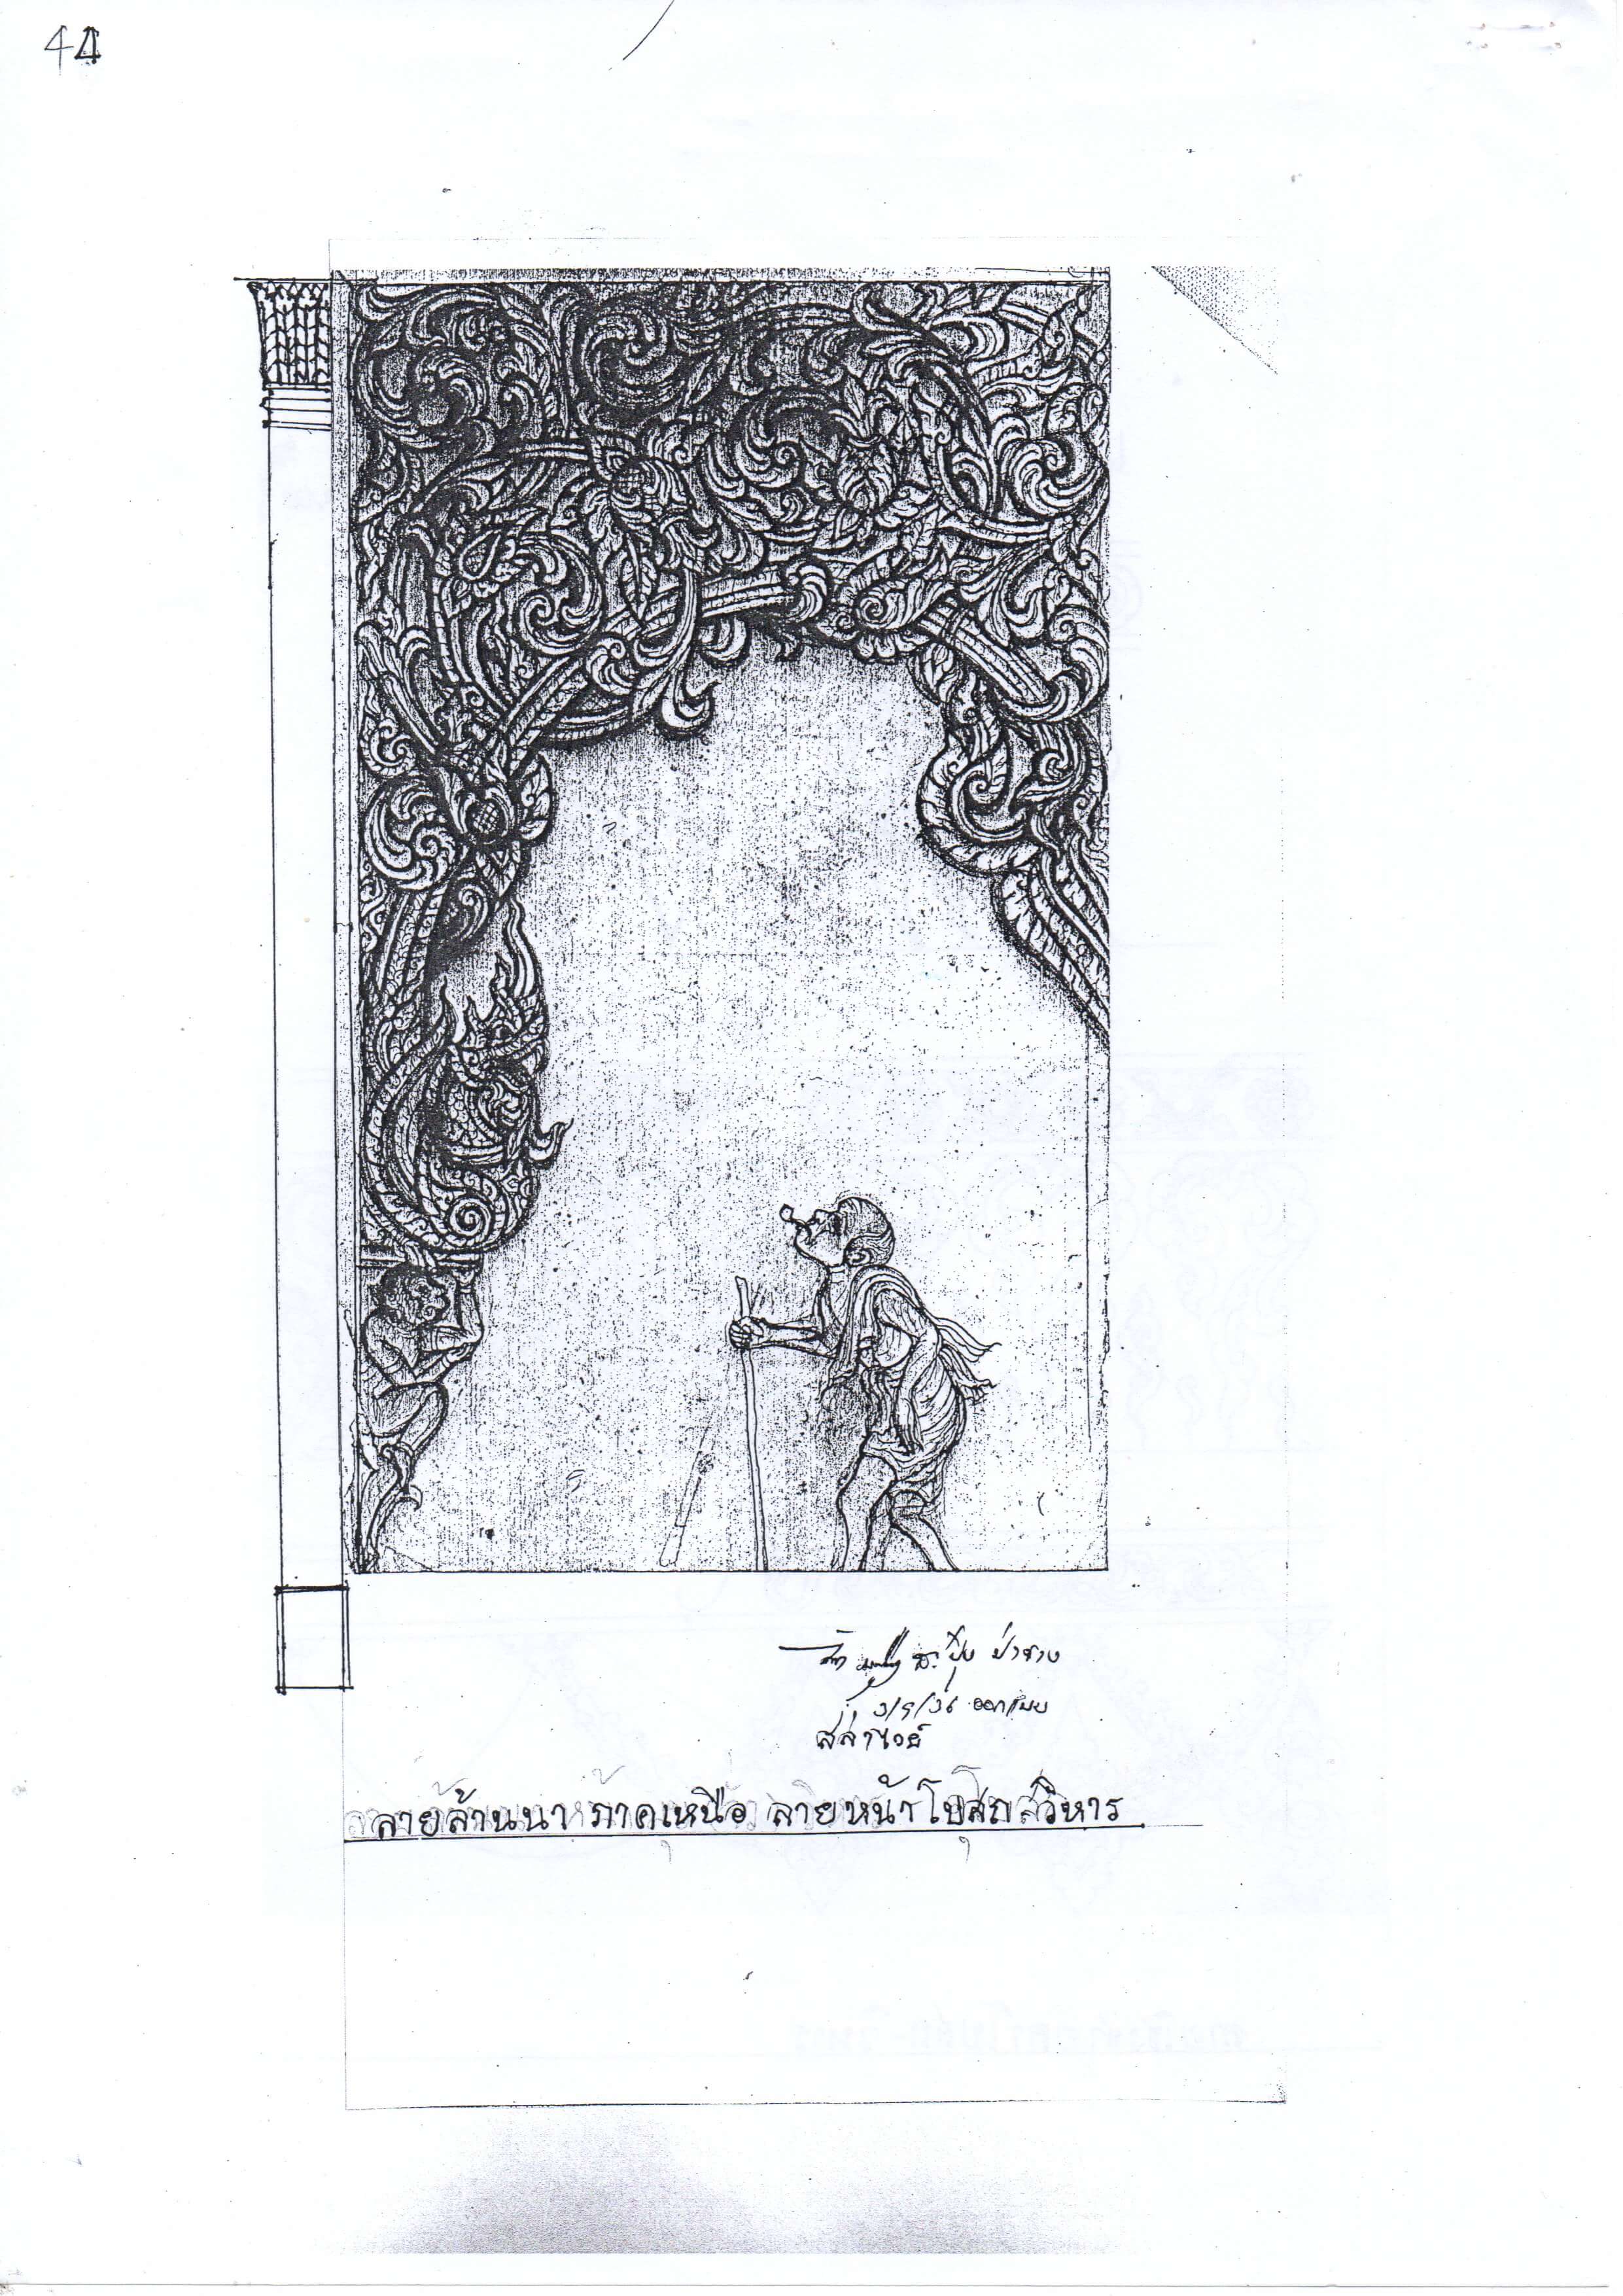 44
ปุง ป่าซาง
3/9/36 ออกแบบ
สล่าไวย์
ลายล้านนาภาคเหนือ ลายหน้าโบสถ วิหาร